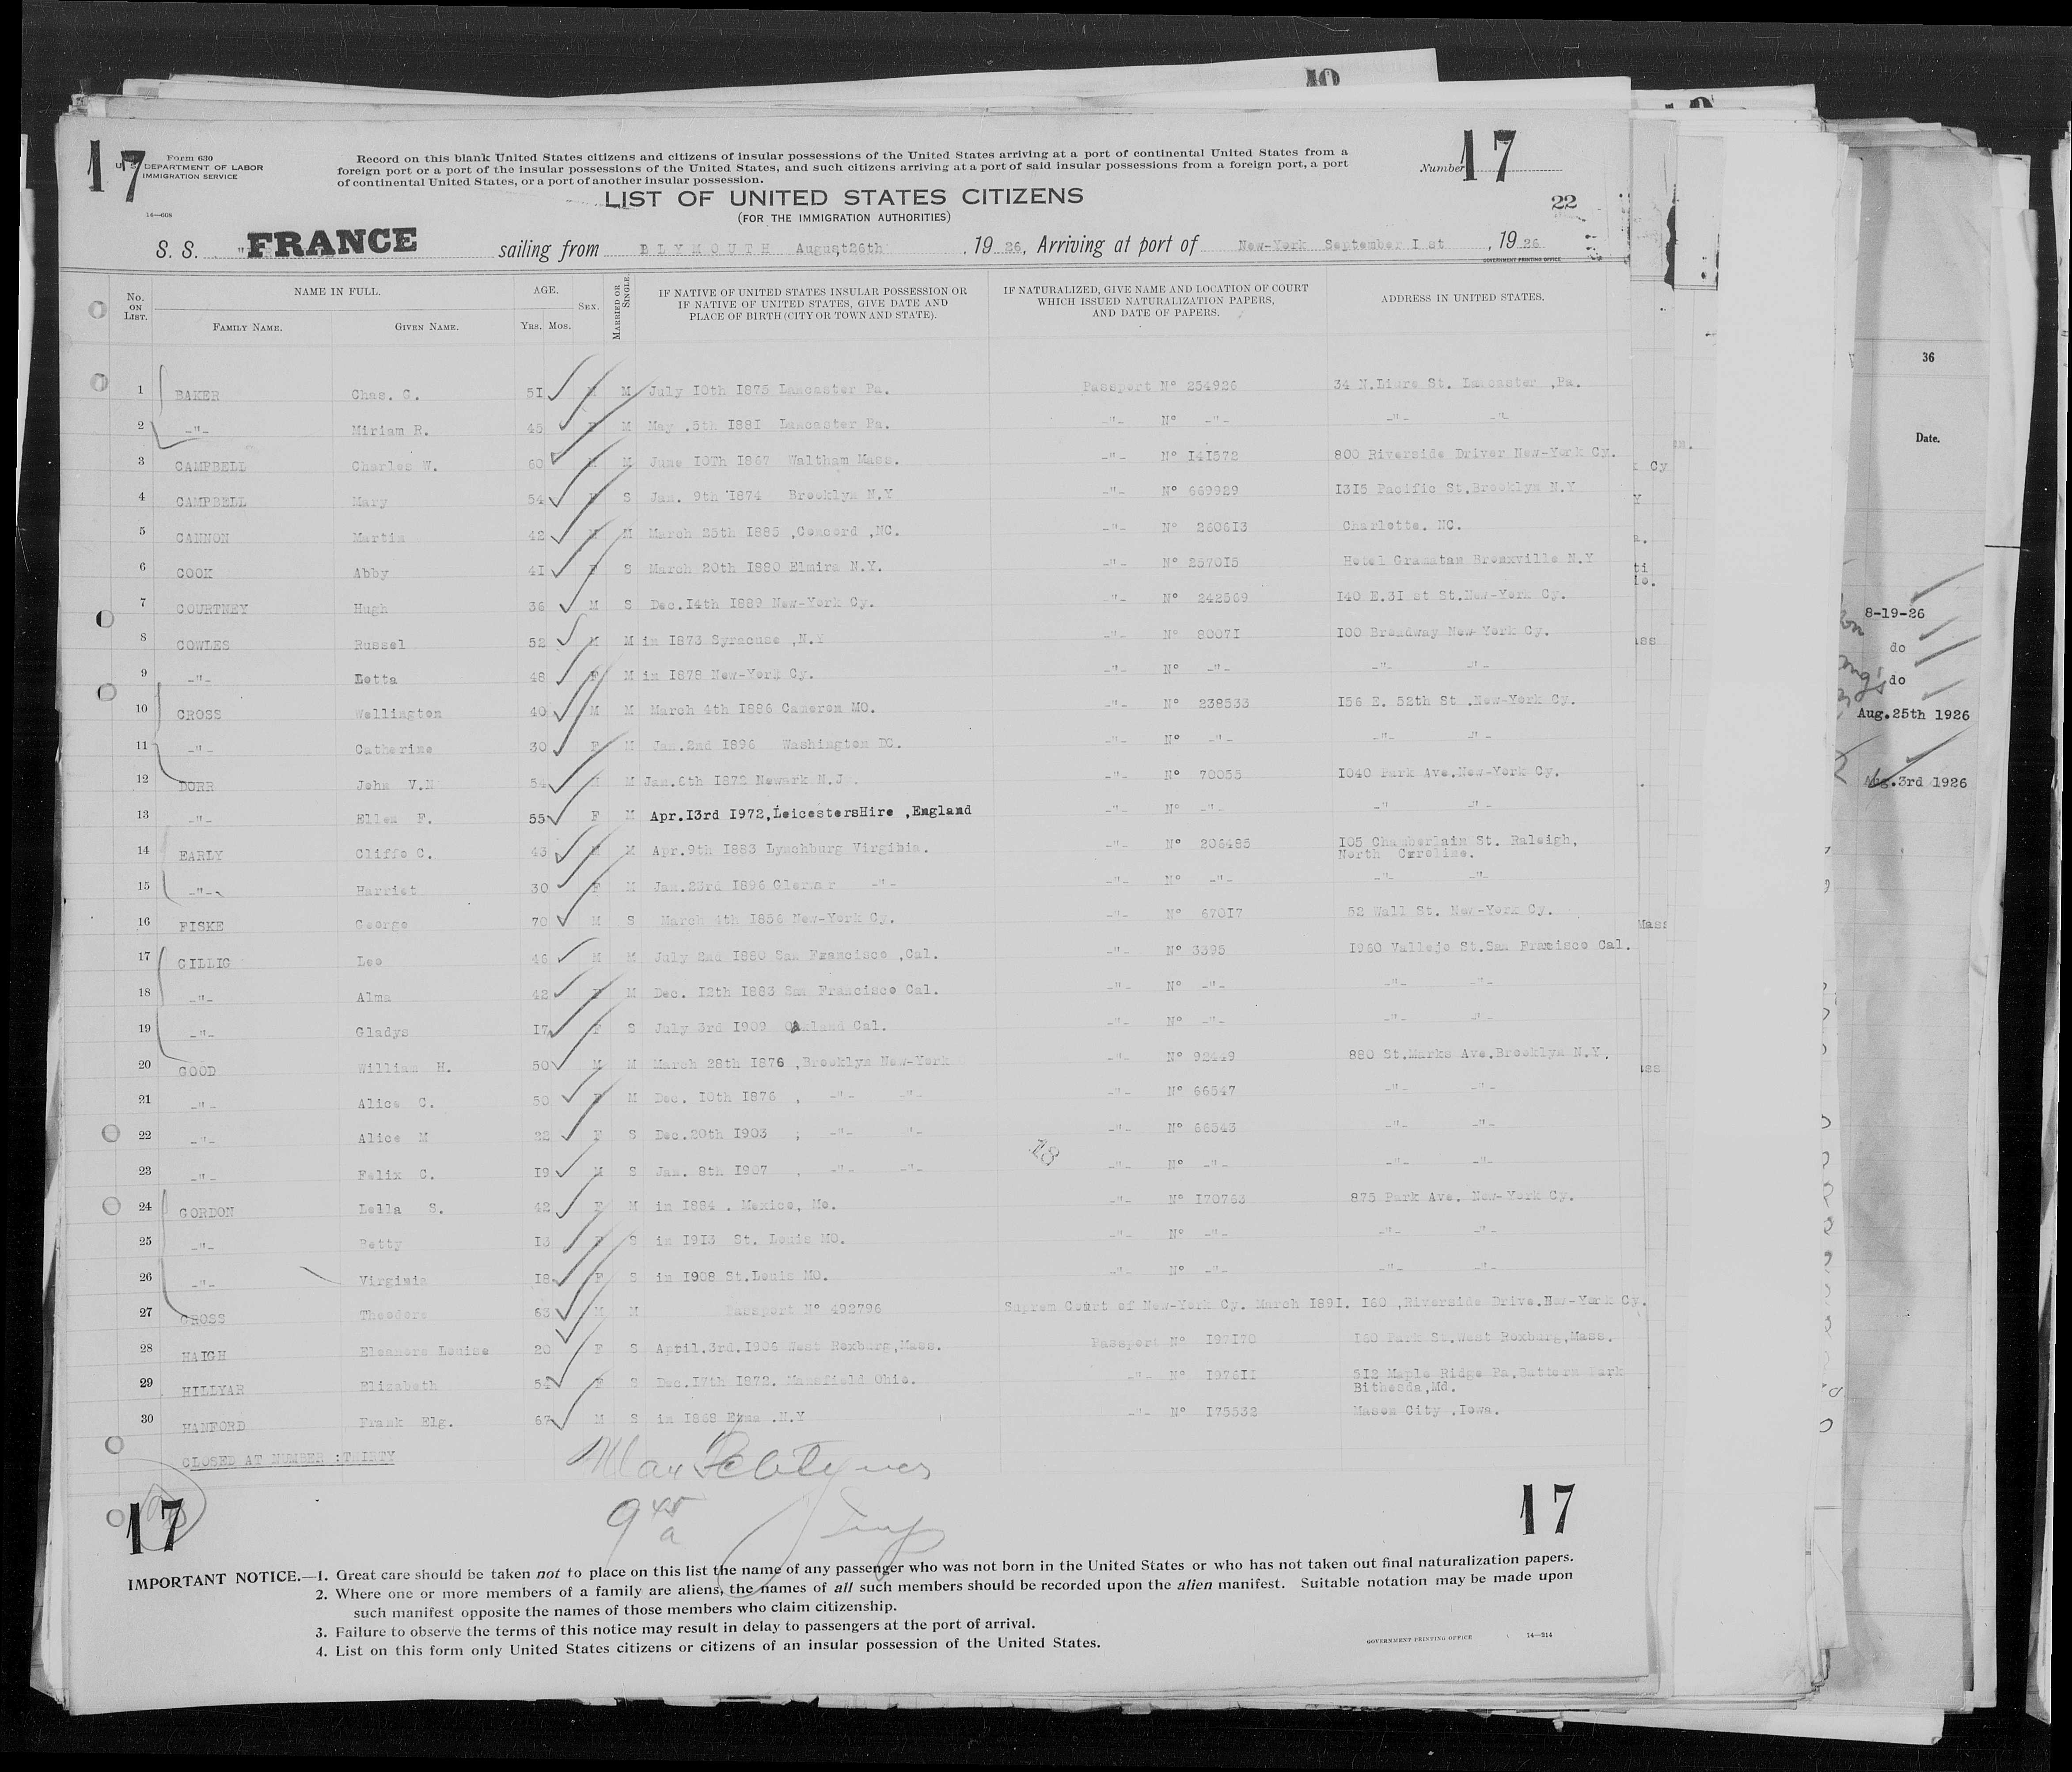 10
17
Form 630
U. S. DEPARTMENT OF LABOR
IMMIGRATION SERVICE
14—608
Record on this blank United States citizens and citizens of insular possessions of the United States arriving at a port of continental United States from a
foreign port or a port of the insular possessions of the United States, and such citizens arriving at a port of said insular possessions from a foreign port, a port
of continental United States, or a port of another insular possession.
Number 17
LIST OF UNITED STATES CITIZENS
(FOR THE IMMIGRATION AUTHORITIES)
22
S. S. FRANCE sailing from PLYMOUTH August,26th , 19 26, Arriving at port of New-York September I st , 19 26
GOVERNMENT PRINTING OFFICE
No. ON LIST. NAME IN FULL. AGE. SEX. MARRIED OR SINGLE. IF NATIVE OF UNITED STATES INSULAR POSSESSION OR IF NATIVE OF UNITED STATES, GIVE DATE AND PLACE OF BIRTH (CITY OR TOWN AND STATE). IF NATURALIZED, GIVE NAME AND LOCATION OF COURT WHICH ISSUED NATURALIZATION PAPERS, AND DATE OF PAPERS. ADDRESS IN UNITED STATES.
FAMILY NAME. GIVEN NAME. YRS. MOS.
1 BAKER Chas. C. 5I M M July I0th I875 Lancaster Pa. Passport N° 254926 34 N. St. Lancaster ,Pa.
2 -"- Miriam R. 45 F M May .5th I88I Lancaster Pa. -"- N° -"- -"- -"-
3 CAMPBELL Charles W. 60 M M June I0Th I867 Waltham Mass. -"- N° I4I572 800 Riverside Driver New-York Cy.
4 CAMPBELL Mary 54 F S Jan. 9th I874 Brooklyn N.Y -"- N° 669929 I3I5 Pacific St.Brooklyn N.Y
5 CANNON Martin 42 M M March 25th I885 ,Concord ,NC. -"- N° 2606I3 Charlotte. NC.
6 COOK Abby 4I F S March 20th I880 Elmira N.Y. -"- N° 2570I5 Hotel Gramatan Bronxville N.Y
7 COURTNEY Hugh 36 M S Dec.I4th I889 New-York Cy. -"- N° 242569 I40 E.3I st St.New-York Cy.
8 COWLES Russel 52 M M in I873 Syracuse ,N.Y -"- N° 8007I I00 Broadway New-York Cy.
9 -"- Lotta 48 F M in I878 New-York Cy. -"- N° -"- -"- -"-
10 CROSS Wellington 40 M M March 4th I886 Cameron MO. -"- N° 238533 I56 E. 52th St .New-York Cy.
11 -"- Catherine 30 F M Jan.2nd I896 Washington DC. -"- N° -"- -"- -"-
12 DORR John V.N 54 M M Jan.6th I872 Newark N.J. -"- N° 70055 I040 Park Ave.New-York Cy.
13 -"- Ellen F. 55 F M Apr.I3rd I972,LeicestersHire ,England -"- N° -"- -" -"-
14 EARLY Cliffe C. 43 M M Apr.9th I883 Lynchburg Virginia. -"- N° 206485 I05 Chamberlain St. Raleigh,
North Caroline.
15 -"- Harriet 30 F M Jan.23rd I896 -"- -"- N° -"- -"- -"-
16 FISKE George 70 M S March 4th I856 New-York Cy. -"- N° 670I7 52 Wall St. New-York Cy.
17 GILLIG Leo 46 M M July 2nd I880 San Francisco ,Cal. -"- N° 3395 I960 Vallejo St.San Francisco Cal.
18 -"- Alma 42 F M Dec. I2th I883 San Francisco Cal. -"- N° -"- -"- -"-
19 -"- Gladys I7 F S July 3rd I909 Oakland Cal. -"- N° -"- -"- -"-
20 GOOD William H. 50 M M March 28th I876 ,Brooklyn New-York -"- N° 92449 880 St.Marks Ave.Brooklyn N.Y.
21 -"- Alice C. 50 F M Dec. I0th I876 , -"- -"- -"- N° 66547 -"- -"-
22 -"- Alice M 22 F S Dec.20th I903 ; -"- "- -"- N° 66543 -"- -"-
23 -"- Felix C. I9 M S Jan. 8th I907 , -"- -"- -"- N° -"- -"- -"-
24 GORDON Lella S. 42 F M in I884 . Mexico, Mo. -"- N° I70763 875 Park Ave. New-York Cy.
25 -"- Betty I3 F S in I9I3 St. Louis MO. -"- N° -"- -"- -"-
26 -"- Virginia I8 F S in I908 St.Louis MO. -"- N° -"- -"- -"-
27 GROSS Theodore 63 M M Passport N° 492796 Suprem Court of New-York Cy. March I89I. I60 ,Riverside Drive.New-York Cy.
28 HAIGH Eleanore Louise 20 F S April.3rd.I906 West Roxburg,Mass. Passport N° I97I70 I60 Park St.West Roxburg,Mass.
29 HILLYAR Elizabeth 54 F S Dec.I7th I872. Mansfield Ohio. -"- N° I976II 5I2 Maple Ridge Pa.Battern Park
Bithesda,Md.
30 HANFORD Frank Elg. 67 M S in I868 .N.Y -"- N° I75532 Mason City .Iowa.
CLOSED AT NUMBER :THIRTY
18
17
17
IMPORTANT NOTICE.—1. Great care should be taken not to place on this list the name of any passenger who was not born in the United States or who has not taken out final naturalization papers.
2. Where one or more members of a family are aliens, the names of all such members should be recorded upon the alien manifest. Suitable notation may be made upon
such manifest opposite the names of those members who claim citizenship.
3. Failure to observe the terms of this notice may result in delay to passengers at the port of arrival.
4. List on this form only United States citizens or citizens of an insular possession of the United States.
GOVERNMENT PRINTING OFFICE 14—314
36
Date.
8-19-26
do
do
Aug.25th 1926
Aug.3rd 1926